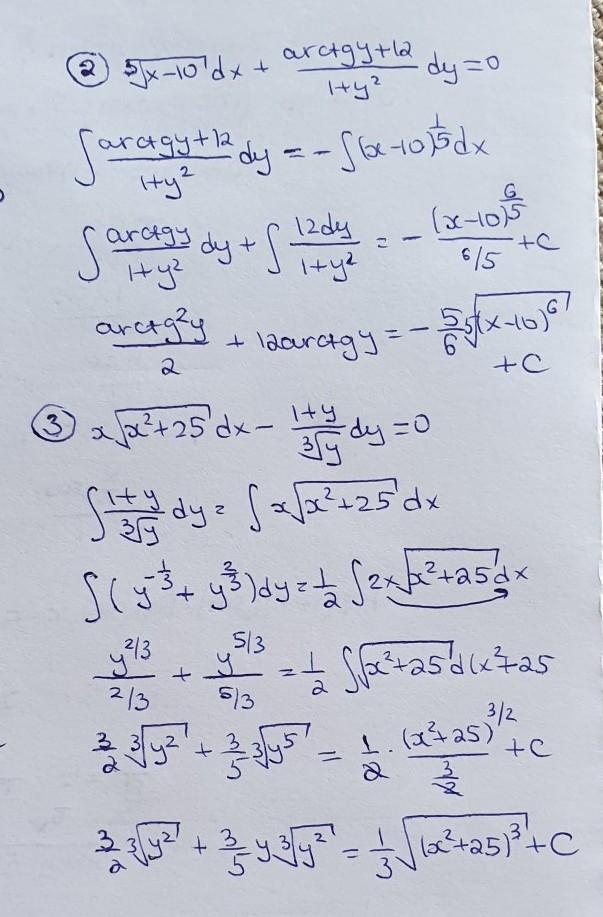 ② ⁵√(x-10) dx + (arctgy+12)/(1+y²) dy = 0
∫ (arctgy+12)/(1+y²) dy = - ∫(x-10)^(1/5) dx
∫ arctgy/(1+y²) dy + ∫ 12dy/(1+y²) = - (x-10)^(6/5)/(6/5) + C
arctg²y/2 + 12arctgy = - 5/6 ⁵√(x-10)⁶ + C
③ x√(x²+25) dx - (1+y)/³√y dy = 0
∫ (1+y)/³√y dy = ∫ x√(x²+25) dx
∫(y^(-1/3) + y^(2/3))dy = 1/2 ∫2x√(x²+25) dx
y^(2/3)/(2/3) + y^(5/3)/(5/3) = 1/2 ∫√(x²+25) d(x²+25
3/2 ³√y² + 3/5 ³√y⁵ = 1/2 · (x²+25)^(3/2)/(3/2) + C
3/2 ³√y² + 3/5 y ³√y² = 1/3 √(x²+25)³ + C